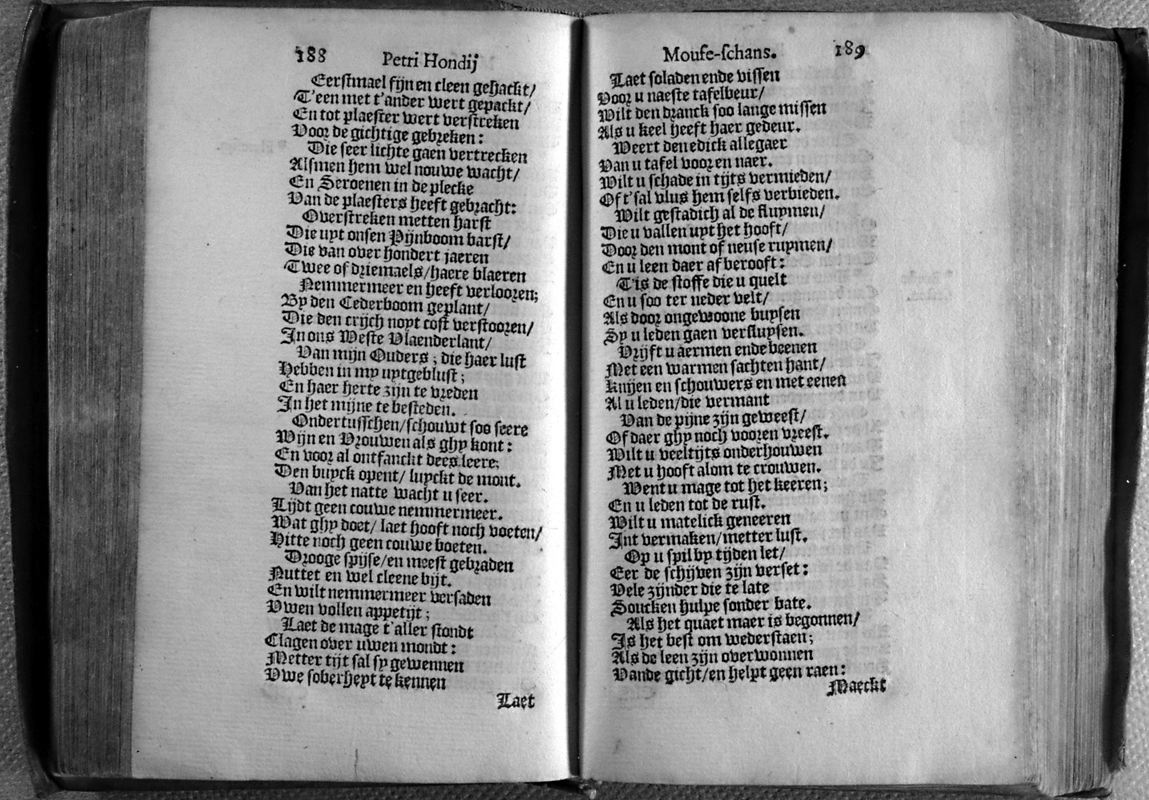 188 Petri Hondij
Eerstmael fijn en cleen gehackt/
T'een met t'ander wert gepackt/
En tot plaester wert verstreken
Voor de gichtige gebreken:
Die seer lichte gaen vertrecken
Alsmen hem wel nouwe wacht/
En Seroenen in de plecke
Van de plaesters heeft gebracht:
Overstreken metten harst
Die uyt onsen Pijnboom barst/
Die van over hondert jaeren
Twee of driemaels/haere blaeren
Nemmermeer en heeft verlooren;
By den Cederboom geplant/
Die den crijch noyt cost verstooren/
In ons Weste Vlaenderlant/
Van mijn Ouders; die haer lust
Hebben in my uytgeblust;
En haer herte zijn te vreden
In het mijne te besteden.
Ondertusschen/schouwt soo seere
Wijn en Vrouwen als ghy kont:
En voor al ontfanckt dees leere;
Den buyck opent/ luyckt de mont.
Van het natte wacht u seer.
Lijdt geen couwe nemmermeer.
Wat ghy doet/ laet hooft noch voeten/
Hitte noch geen couwe boeten.
Drooge spijse/en meest gebraden
Nuttet en wel cleene bijt.
En wilt nemmermeer versaden
Vwen vollen appetijt;
Laet de mage t'aller stondt
Clagen over uwen mondt:
Metter tijt sal sy gewennen
Vwe soberheyt te kennen
Laet
Mouse-schans. 189
Laet soladen ende vissen
Voor u naeste tafelbeur/
Wilt den dranck soo lange missen
Als u keel heeft haer gedeur.
Weert den edick allegaer
Van u tafel voor en naer.
Wilt u schade in tijts vermieden/
Of t'sal vlus hem selfs verbieden.
Wilt gestadich al de fluymen/
Die u vallen uyt het hooft/
Door den mont of neuse ruymen/
En u leen daer af berooft:
T'is de stoffe die u quelt
En u soo ter neder velt/
Als door ongewoone buysen
Sy u leden gaen verfluysen.
Vrijft u aermen ende beenen
Met een warmen sachten hant/
Knijen en schouwers en met eenen
Al u leden/die vermant
Van de pijne zijn geweest/
Of daer ghy noch vooren vreest.
Wilt u veeltijts onderhouwen
Met u hooft alom te crouwen.
Went u mage tot het keeren;
En u leden tot de rust.
Wilt u matelick geneeren
Int vermaken/metter lust.
Op u spil by tijden let/
Eer de schijven zijn verset:
Vele zijnder die te late
Soucken hulpe sonder bate.
Als het quaet maer is begonnen/
Is het best om wederstaen;
Als de leen zijn overwonnen
Vande gicht/en helpt geen raen:
Maeckt